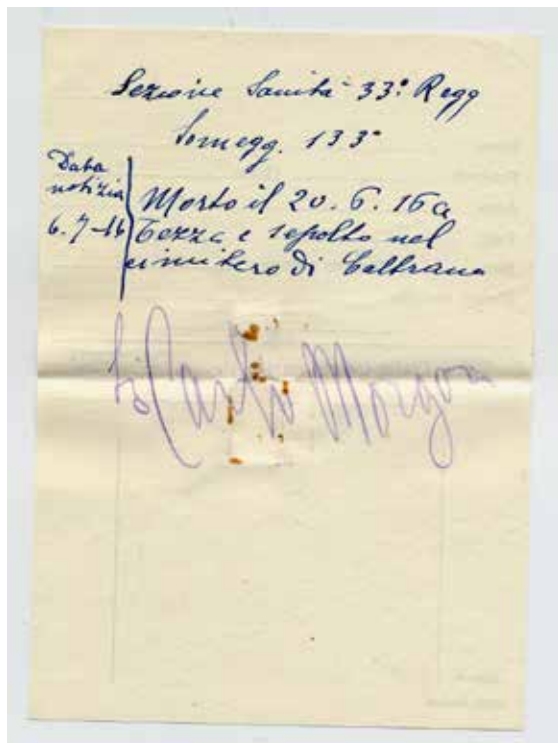 Sezione Sanità 33º Regg
Someg. 133º
Data
notizia
6.7-16
Morto il 20.6.16 a
Tezza e sepolto nel
cimitero di Caltrana
Carlo Morgon